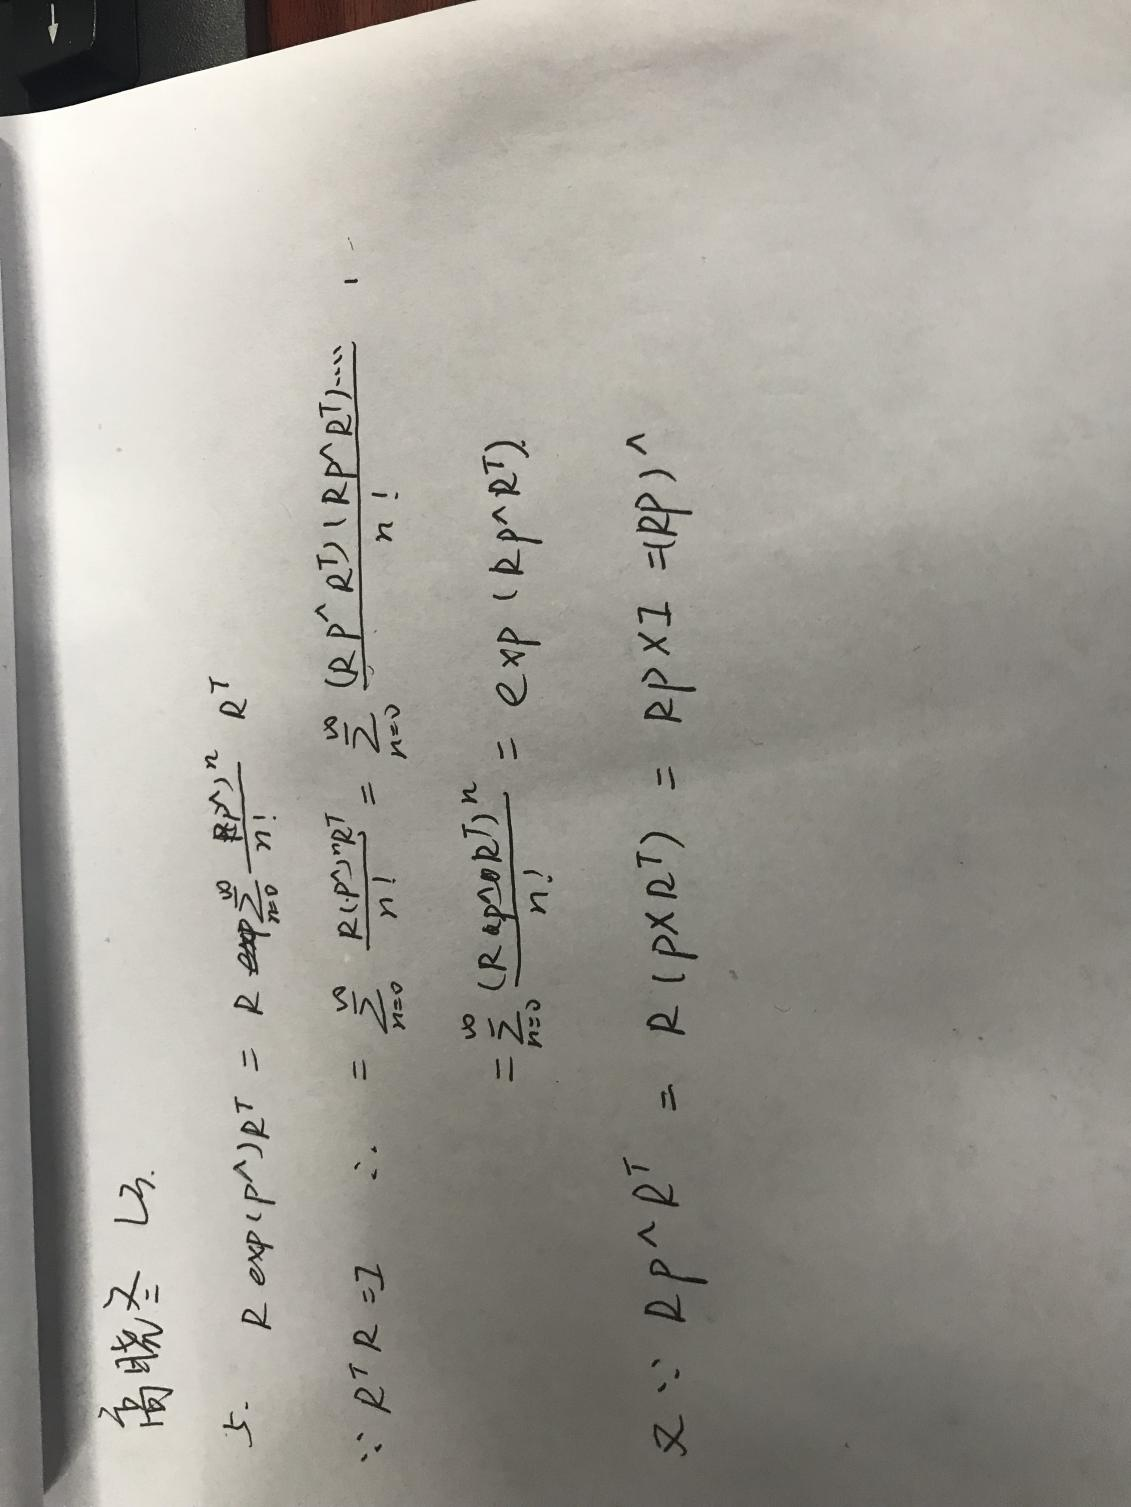 高晓冬 L3.
5. R exp(p^)Rᵀ = R ∑_{n=0}^{∞} (p^)ⁿ/n! Rᵀ
∵ RᵀR=I ∴ = ∑_{n=0}^{∞} R(p^)ⁿRᵀ/n! = ∑_{n=0}^{∞} (Rp^Rᵀ)(Rp^Rᵀ)..../n!
= ∑_{n=0}^{∞} (Rp^Rᵀ)ⁿ/n! = exp(Rp^Rᵀ).
又∵ Rp^Rᵀ = R(p×Rᵀ) = Rp×I =(Rp)^